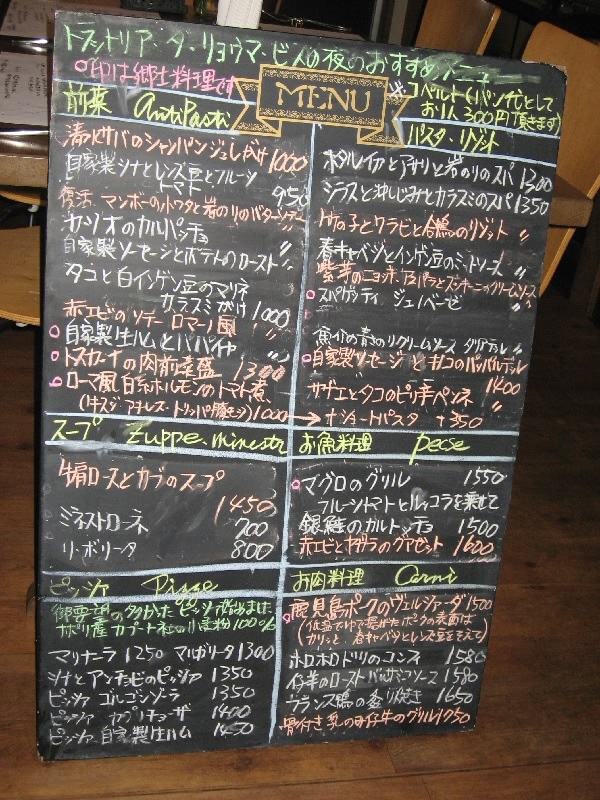 トラットリア・ダ・リョウマ・ビスの夜のおすすめメニュー
○印は郷土料理です
MENU
※コペルト(パン代)として
お1人300円頂きます)
前菜 Antipasti
清水サバのシャンパンジュレがけ 1000
自家製シナとレンズ豆とフルーツ
トマト 950
復活 マンボーのホワタと岩のりのバターソテー 〃
カツオのカルパッチョ 〃
自家製ソーセージとポテトのロースト 〃
タコと白インゲン豆のマリネ
カラスミがけ 1000
赤エビのソテー ロマーノ風 〃
○自家製生ハムとパパイヤ 〃
○トスカーナの肉前菜盛 1300
○ローマ風 白糸ホルモンのトマト煮
(牛スジ アキレス・トリッパ・豚モツ) 1000
パスタ・リゾット
ホタルイカとアサリと岩のりのスパ 1300
シラスと沖しじみとカラスミのスパ 1350
竹の子とワラビと合鴨のリゾット 〃
春キャベツとインゲン豆のミートソース 〃
紫芋のニョッキ
クリームソース
○スパゲッティ ジェノベーゼ 〃
クリームソース タリアテレ 〃
○自家製ソーセージとキノコのパッパルデッレ
1400
サザエとタコのピリ辛ペンネ 〃
→ショートパスタ +350
スープ Zuppe・minestre
牛肩ロースとカブのスープ
1450
ミネストローネ 700
リ・ボリータ 800
お魚料理 pesce
○マグロのグリル 1550
フルーツトマトとルッコラを乗せて
銀鮭のカルトッチョ 1500
赤エビとホタテのグアゼット 1600
ピッツァ Pizze
御要望の多かったピッツァ始めました
ナポリ産カプート社の小麦粉100%
マリナーラ 1250 マルガリータ 1300
シナとアンチョビのピッツァ 1350
ピッツァ ゴルゴンゾーラ 1350
ピッツァ カプリチョーザ 1400
ピッツァ 自家製生ハム 1450
お肉料理 Carni
○鹿児島ポークのヴェルジャーダ 1500
(低温でゆで揚がたポークの表面は
カリッと、春キャベツとレンズ豆をそえて)
ホロホロドリのコンフィ 1580
仔羊のロースト バルサミコソース 1580
フランス鴨の炙り焼き 1650
骨付き乳のみ仔牛のグリル 1750